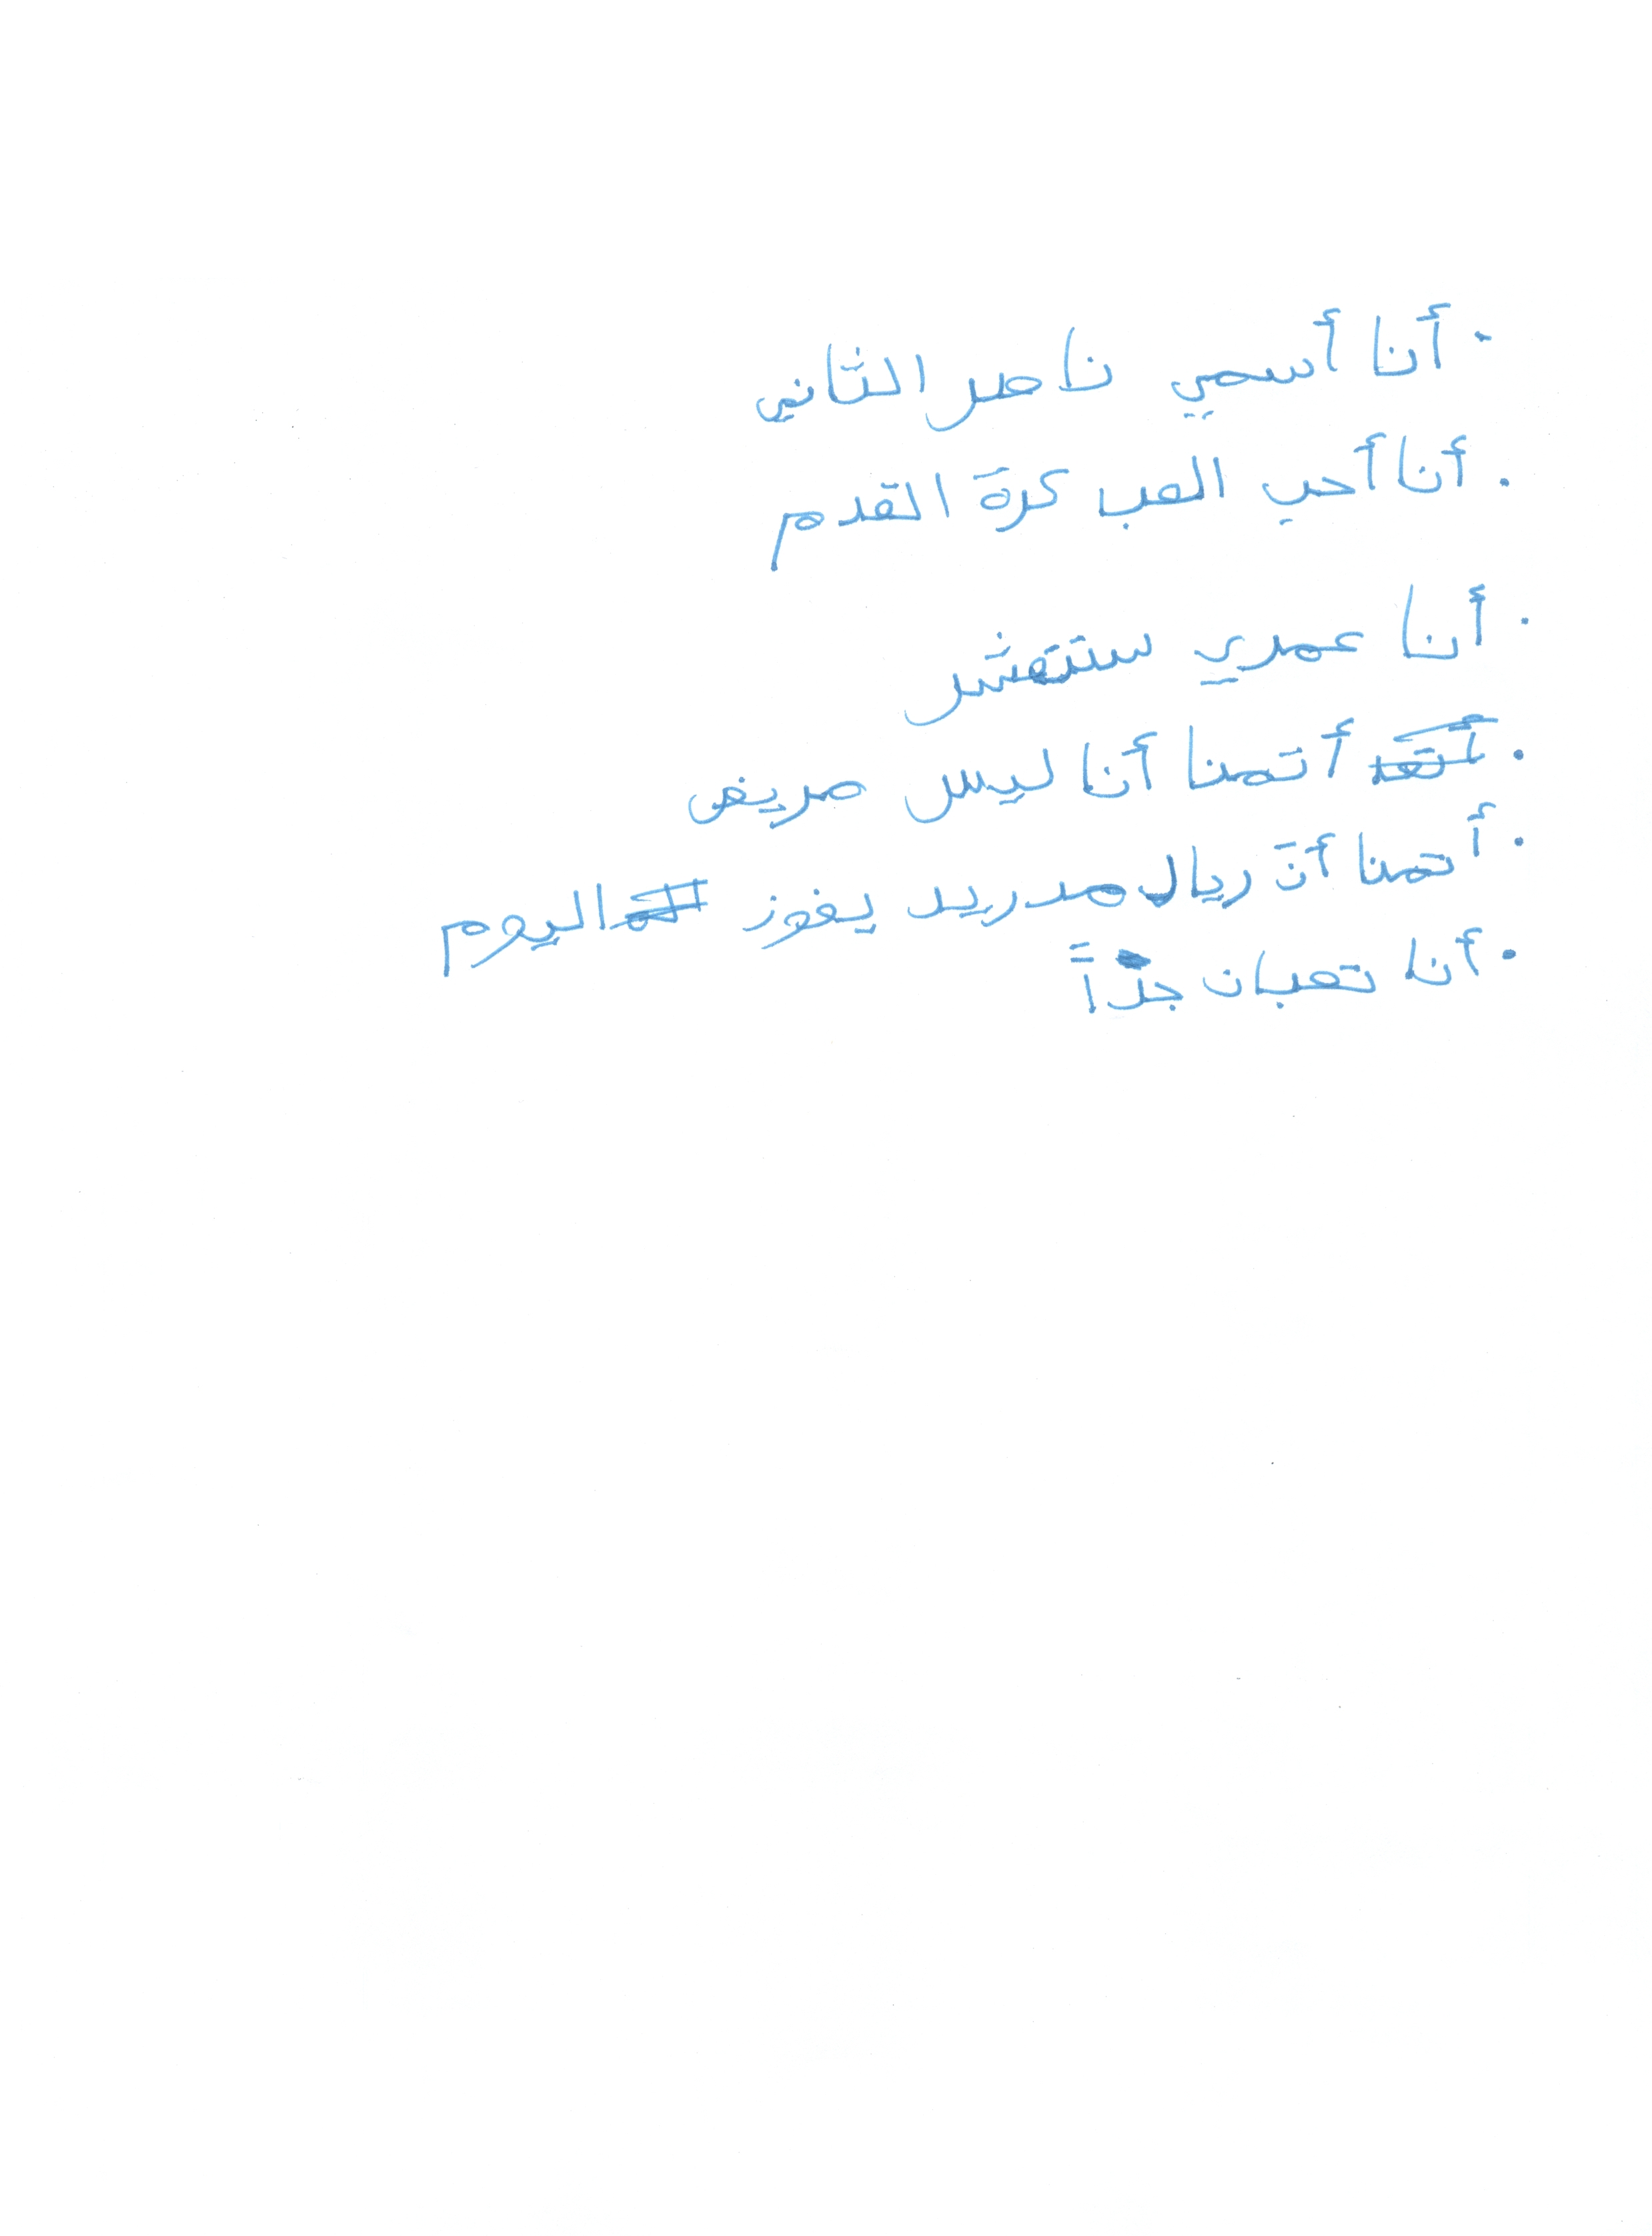 . أنا أسمي ناصر الثّاني
. أنا أحب العب كرةَ القدم
. أنا عمري ستتعشر
. أتمنا أنا ليس مريض
. أتمنا أنَ ريال مدريد يفوز اليوم
. أنا تعبان جدّاً